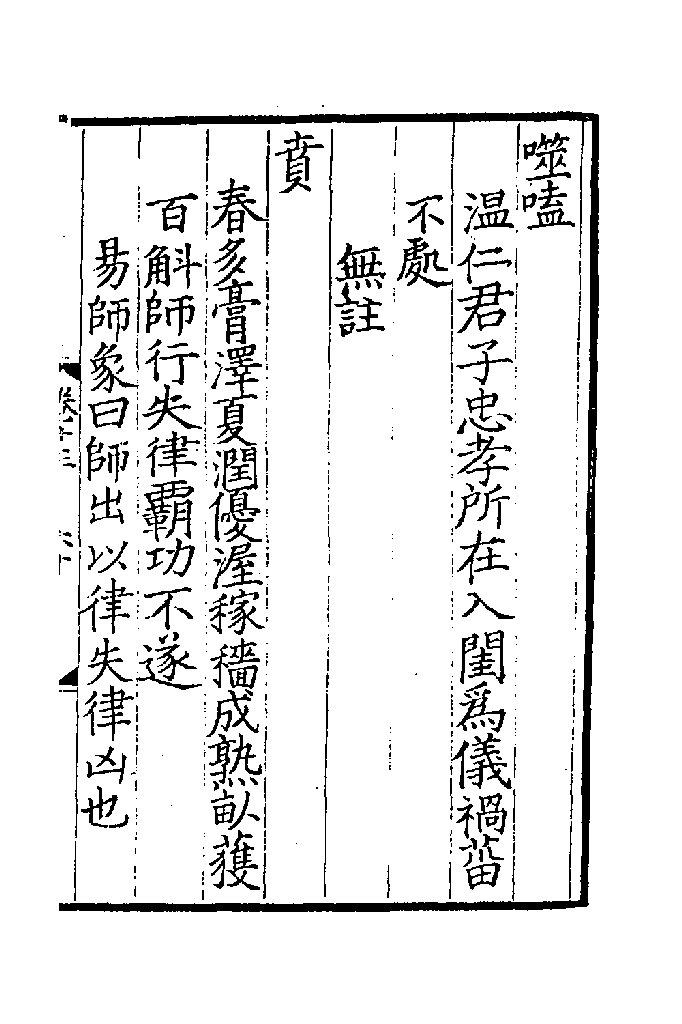 噬嗑
温仁君子忠孝所在入閨爲儀禍菑
不處
無註
賁
春多膏澤夏潤優渥稼穡成熟畝獲
百斛師行失律霸功不遂
易師象曰師出以律失律凶也